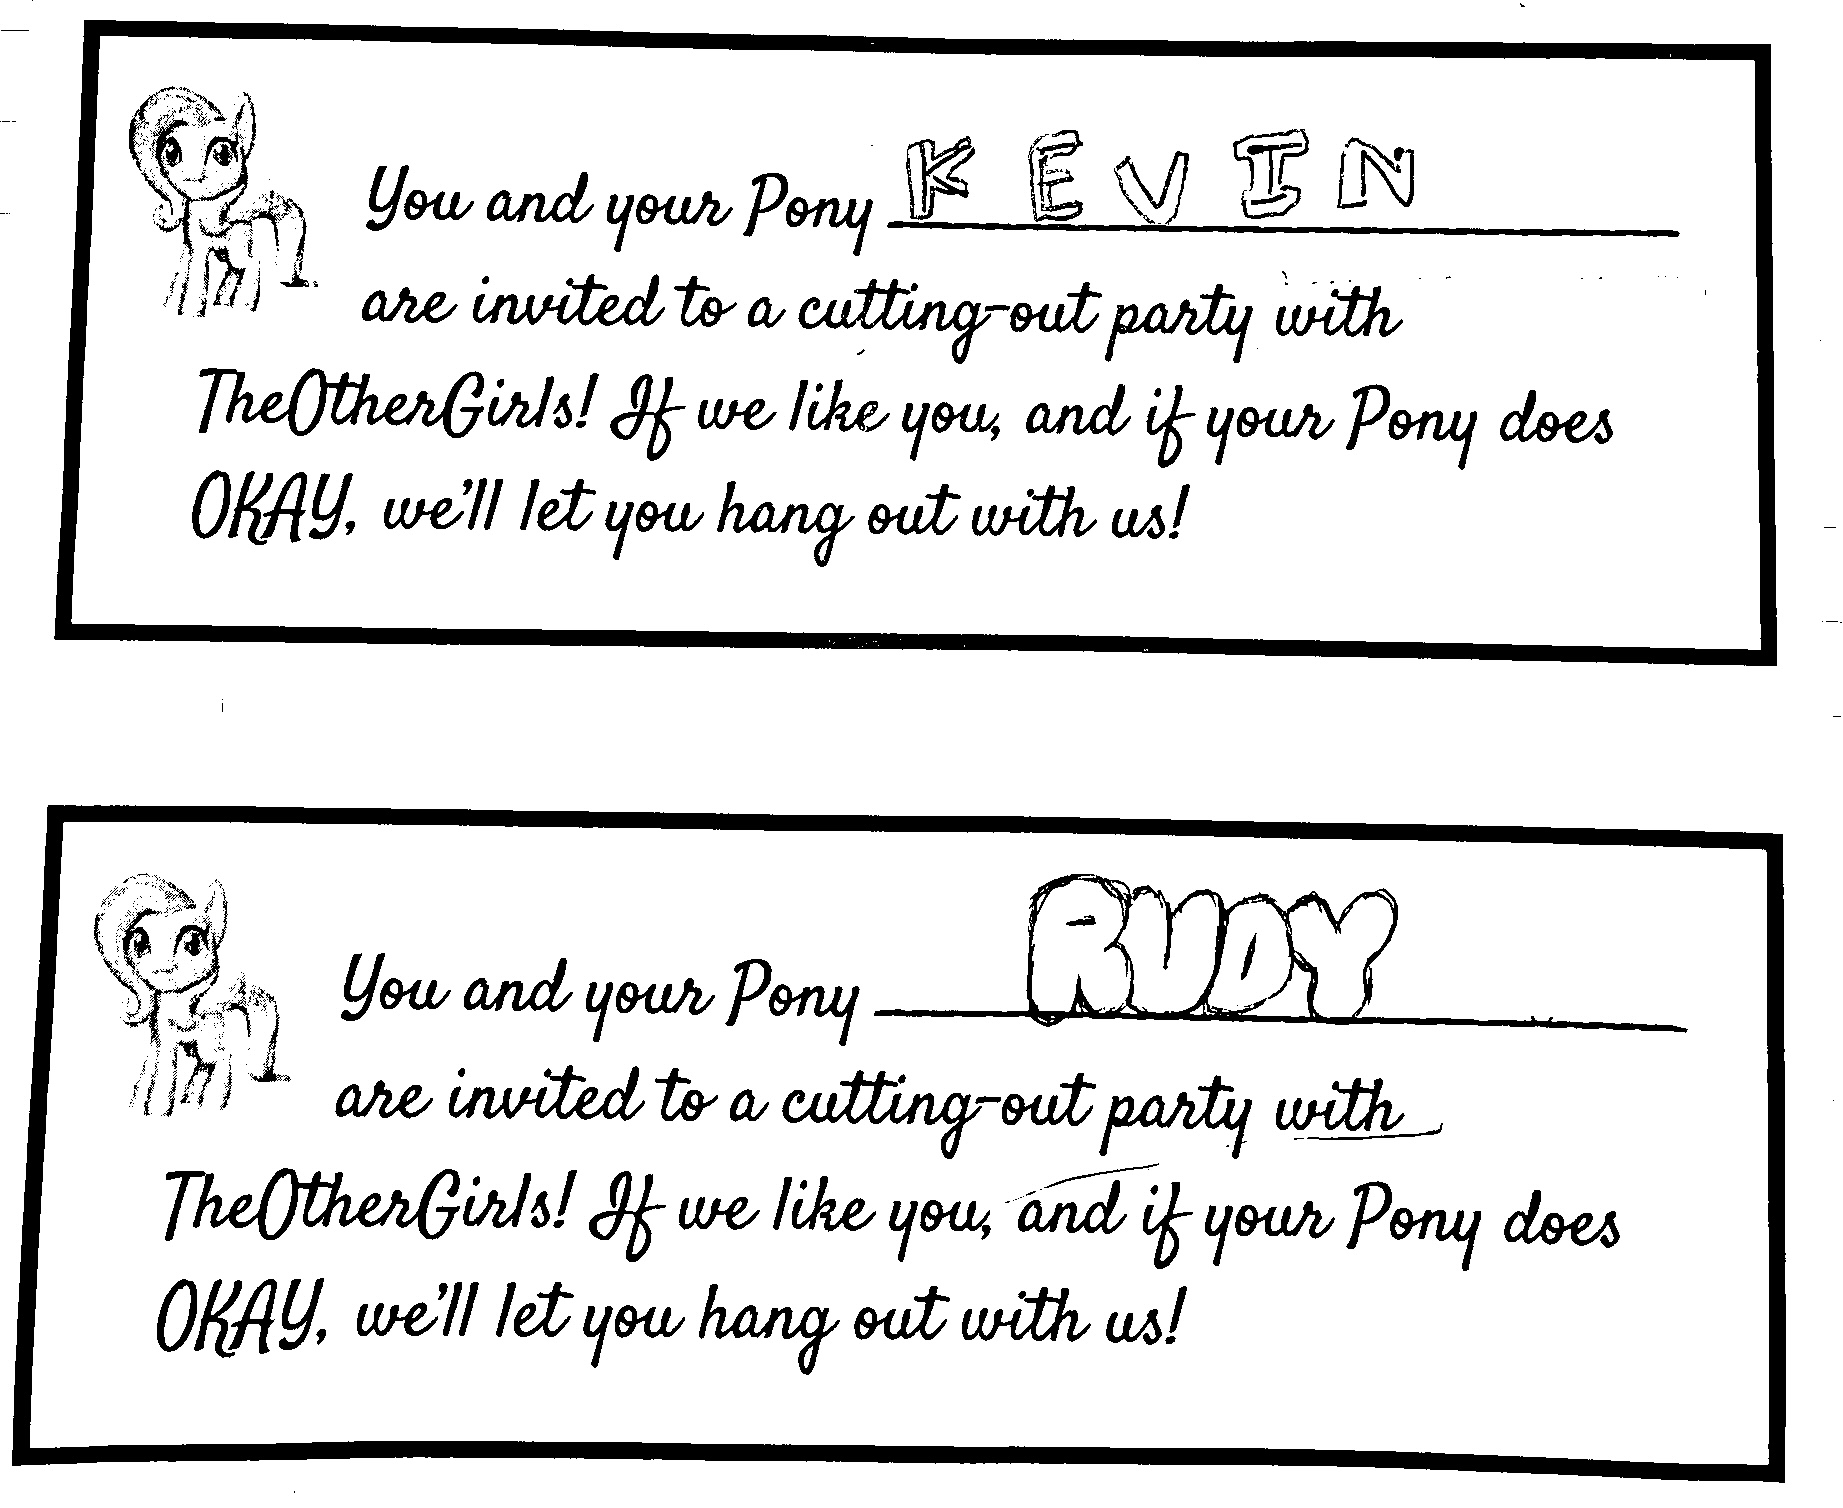 You and your Pony KEVIN
are invited to a cutting-out party with
TheOtherGirls! If we like you, and if your Pony does
OKAY, we'll let you hang out with us!
You and your Pony RUDY
are invited to a cutting-out party with
TheOtherGirls! If we like you, and if your Pony does
OKAY, we'll let you hang out with us!